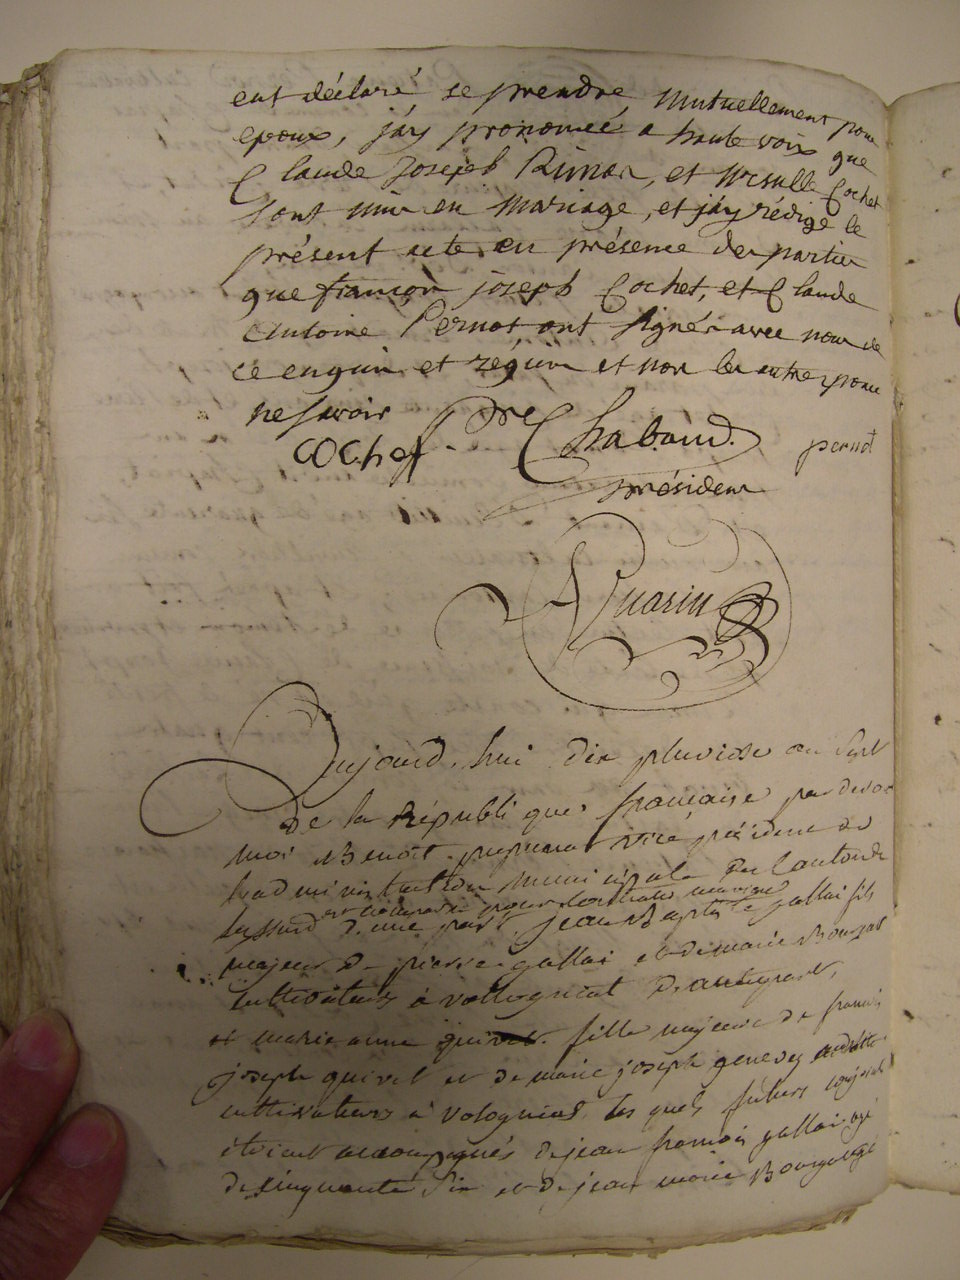 ent déclaré se prendre mutuellement pour
epoux, j'ay prononcé a haute voix que
Claude Joseph et Ursulle Cochet
sont unis en mariage, et j'ay rédigé le
présent acte en présence des parties
que françois joseph Cochet, et Claude
antoine Pernot ont signés avec nous de
ce enquis et réquis et non les autres pour
ne savoir
Cochet Chaboud. pernot
président
Aujourd'hui dix pluviose an sept
De la République française par devan
moi Benoit vice président de
l'administration municipale du Canton de
et comparu pour contracter mariage
d'une part jean Baptiste gallai fils
majeur de pierre gallai et de marie
cultivateurs à
et marie anne fille majeure de françois
joseph et de marie joseph
cultivateurs à les quels futurs conjoints
étoient accompagnés de jean françois gallai agé
de cinquante six et de jean marie